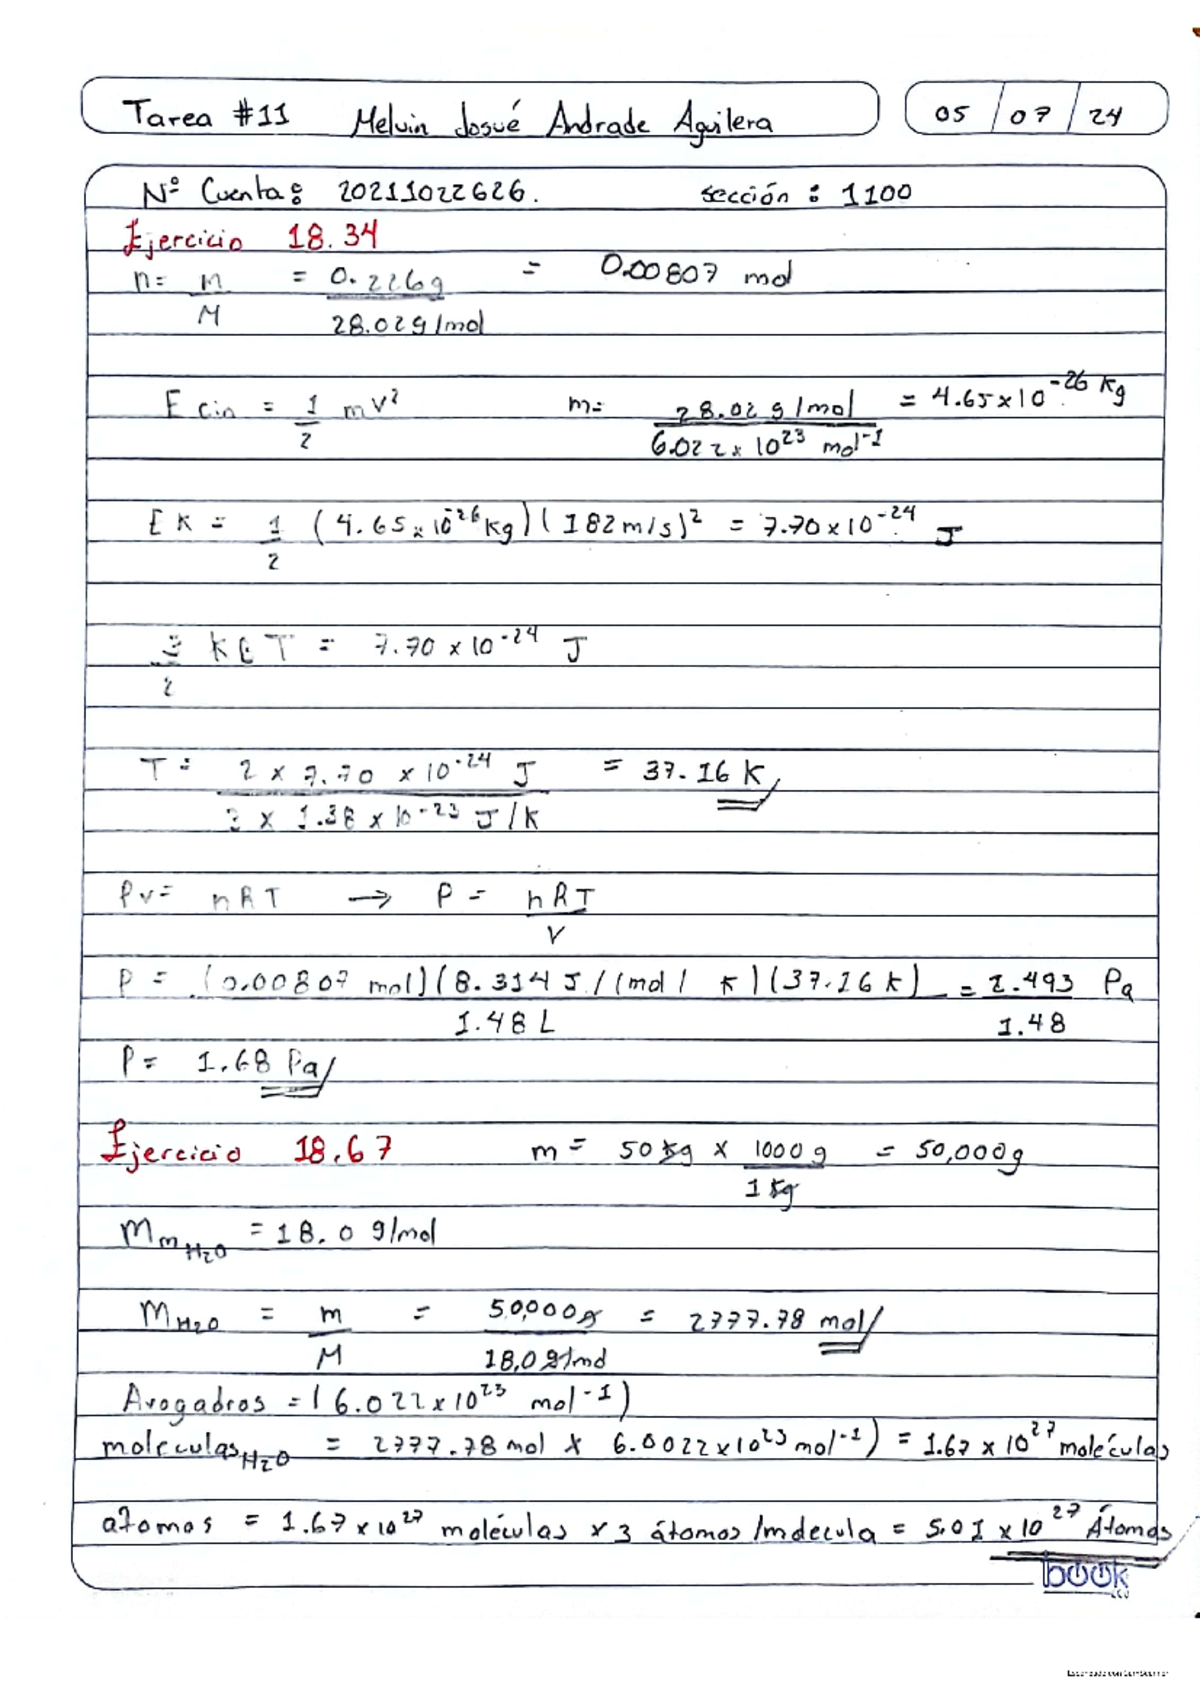 Tarea #11 Melvin Josué Andrade Aguilera 05/07/24
Nº Cuenta: 20211022626. sección: 1100
Ejercicio 18.34
n= m/M = 0.226g / 28.02g/mol = 0.00807 mol
E cin = 1/2 mv² m= 28.02 g/mol / 6.022x10²³ mol⁻¹ = 4.65x10⁻²⁶ Kg
EK = 1/2 (4.65x10⁻²⁶Kg)(182m/s)² = 7.70x10⁻²⁴ J
/2 KBT = 7.70 x10⁻²⁴ J
T = 2 x 7.70 x10⁻²⁴ J / 3 x 1.38 x10⁻²³ J/K = 37.16 K
Pv= nRT → P = nRT/V
P = (0.00807 mol)(8.314 J/(mol/ K)(37.16 K) / 1.48 L = 2.493/1.48 Pa
P= 1.68 Pa
Ejercicio 18.67 m= 50kg x 1000g/1kg = 50,000g
Mm H2O = 18.0 g/mol
M H2O = m/M = 50,000g / 18,0g/mol = 2777.78 mol
Avogadros =(6.022x10²³ mol⁻¹)
moleculas H2O = 2777.78mol x 6.0022x10²³mol⁻¹) = 1.67x10²⁷moléculas
atomos = 1.67x10²⁷ moléculas x 3 átomos/molecula = 5.01 x10²⁷ Átomos
book